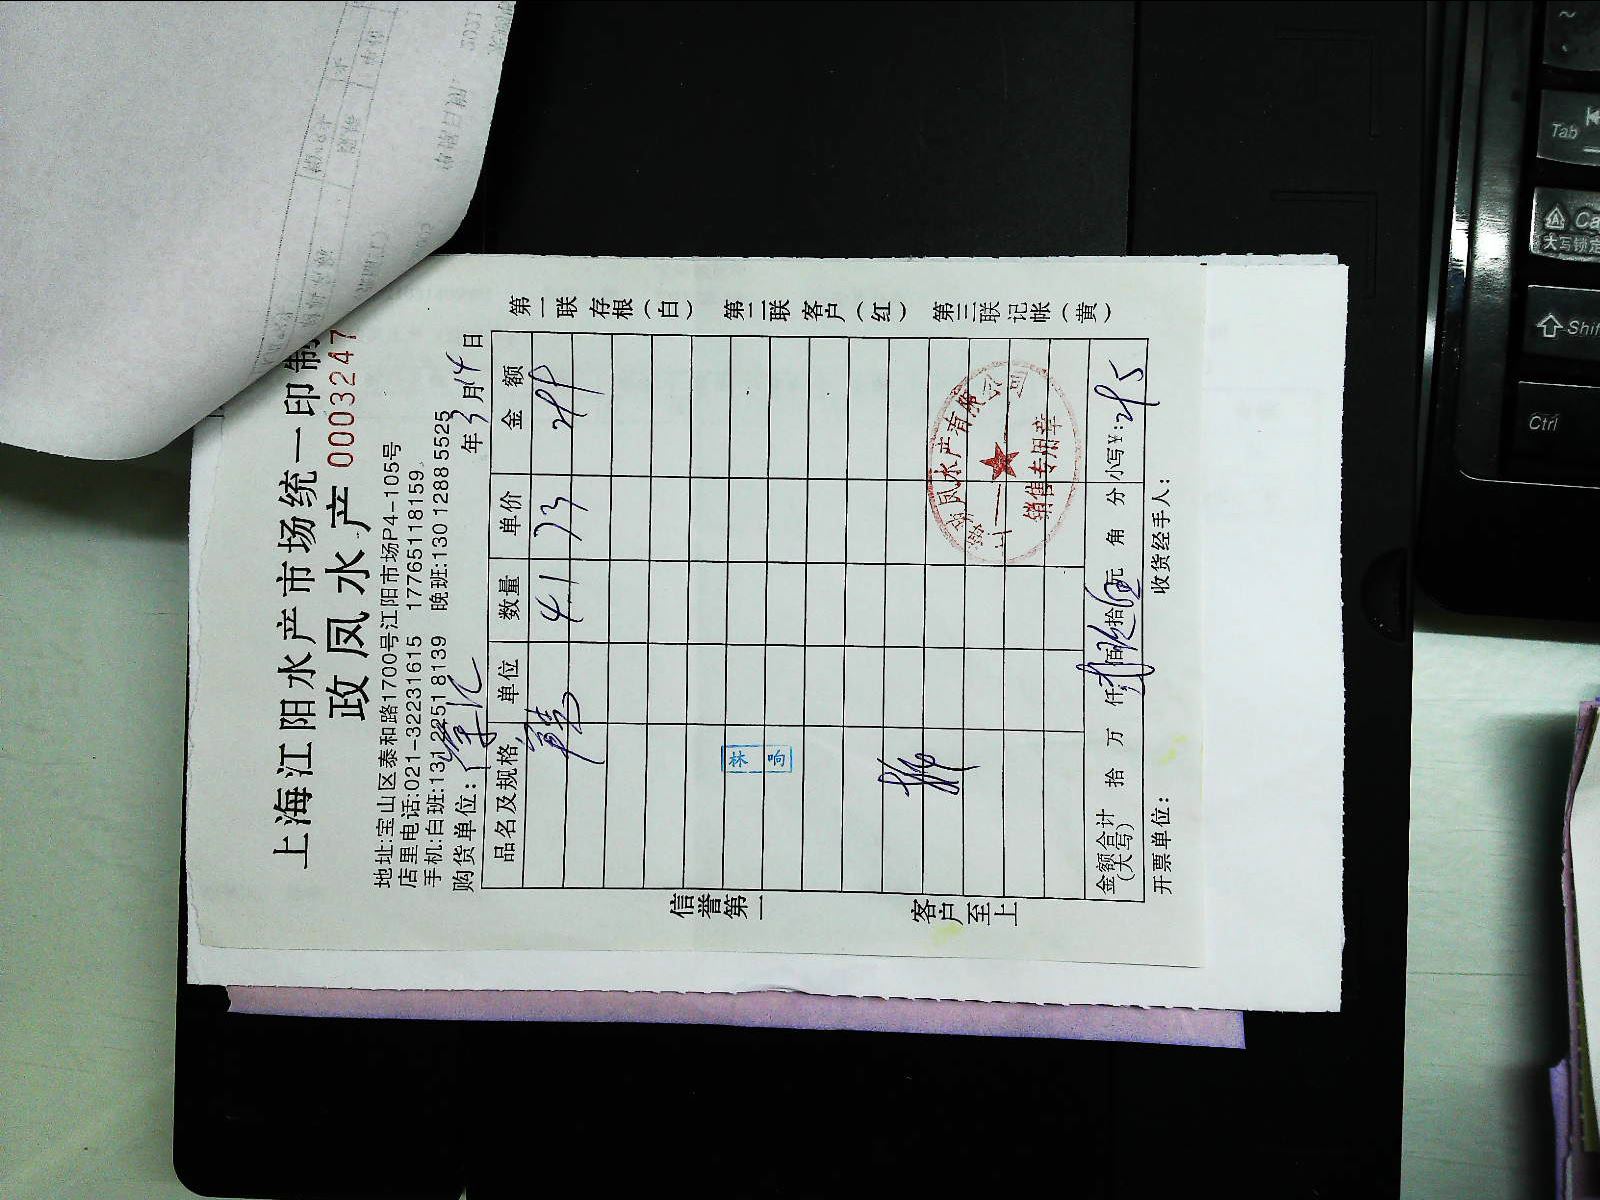 上海江阳水产市场统一印制
政凤水产 0003247
地址:宝山区泰和路1700号江阳市场P4-105号
店里电话:021-32231615 17765118159
手机:白班:131 2251 8139 晚班:130 1288 5525
购货单位: 年3月14日
品名及规格 单位 数量 单价 金额
4.1 73
第一联存根(白) 第二联客户(红) 第三联记帐(黄)
信誉第一
客户至上
林 响
凤水产有限公司
销售专用章
金额合计(大写) 拾 万 仟 佰 拾 元 角 分 小写¥:
开票单位: 收货经手人:
Tab
大写锁定
Ca
Shif
Ctrl